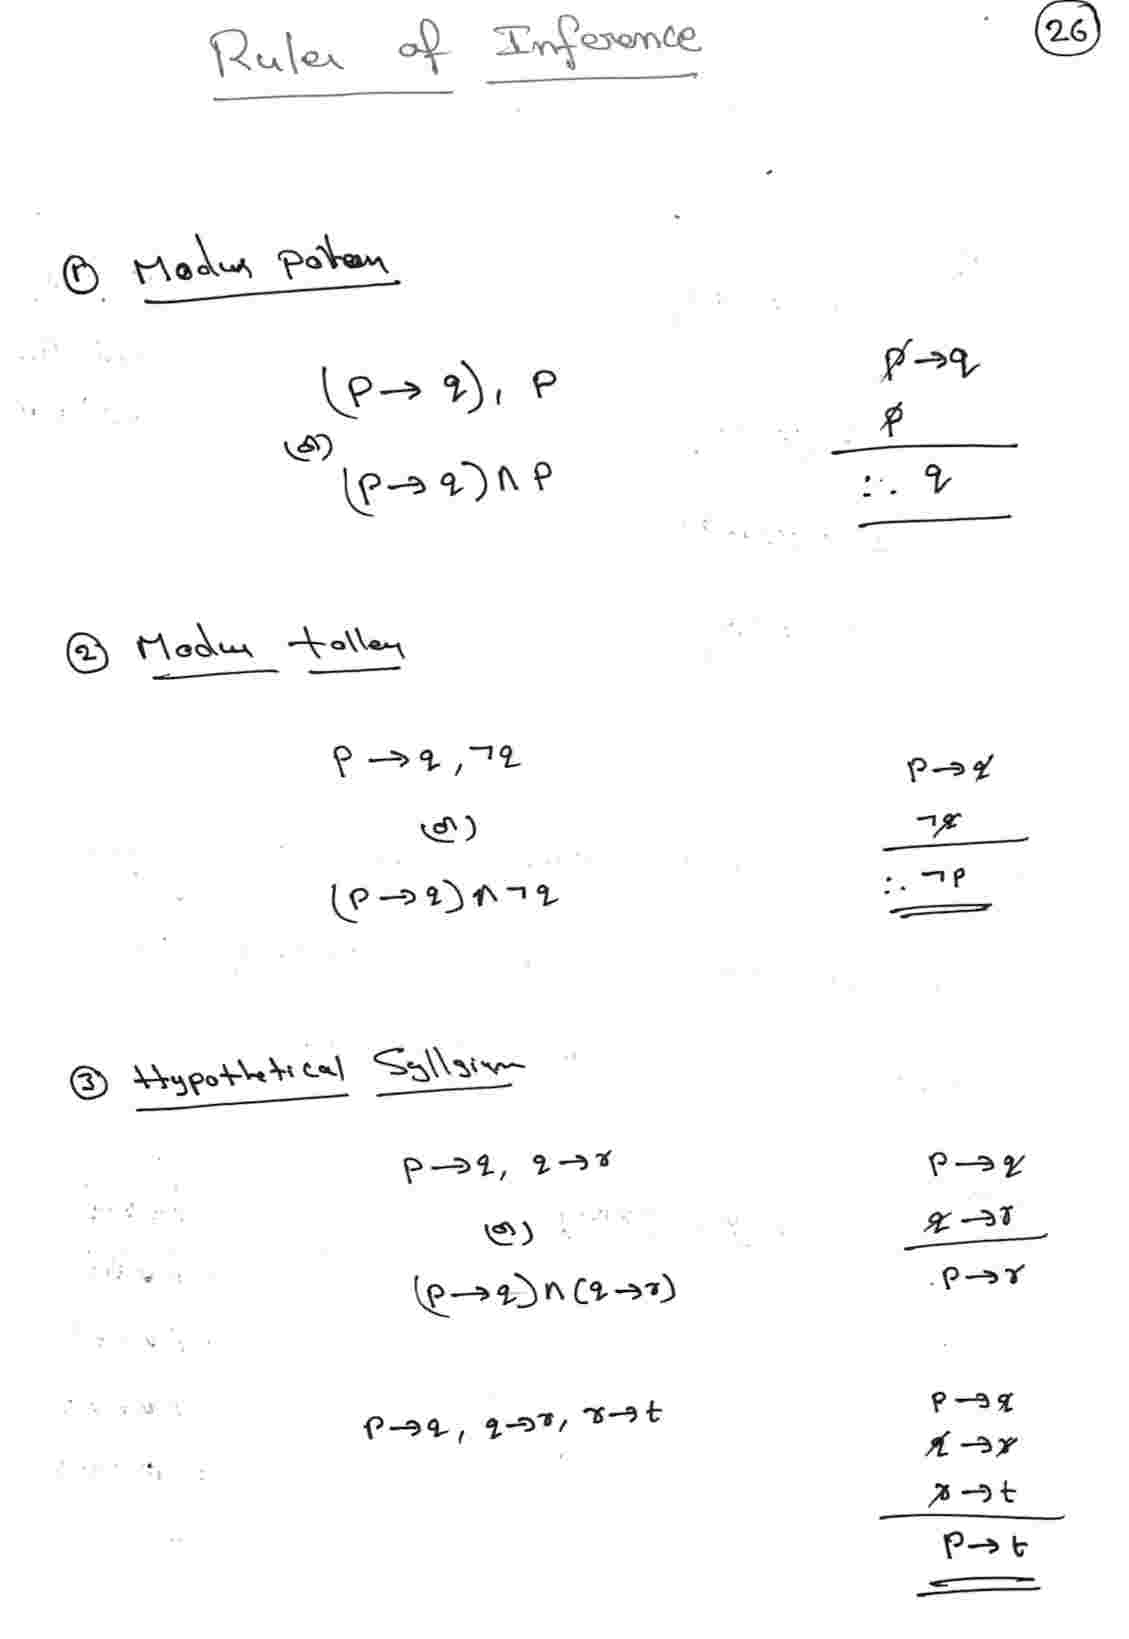 Rules of Inference
26
① Modus Ponen
(p → q), p
(or)
(p → q) ∧ p
p → q
p
∴ q
② Modus tollen
p → q, ¬q
(or)
(p → q) ∧ ¬q
p → q
¬q
∴ ¬p
③ Hypothetical Syllgism
p → q, q → r
(or)
(p → q) ∧ (q → r)
p → q
q → r
p → r
p → q, q → r, r → t
p → q
q → r
r → t
p → t